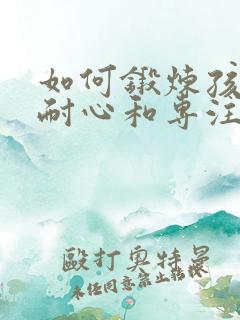 如何鍛炼孩
耐心和专注
毆打奥特曼
未任同意禁止转报